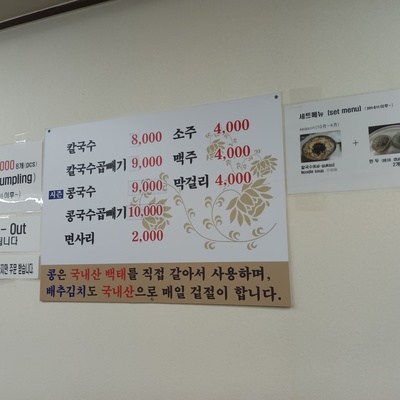 칼국수 8,000
칼국수곱빼기 9,000
시즌 콩국수 9,000
콩국수곱빼기 10,000
면사리 2,000
소주 4,000
맥주 4,000
막걸리 4,000
콩은 국내산 백태를 직접 갈아서 사용하며,
배추김치도 국내산으로 매일 겉절이 합니다.
000 6개(pcs)
umpling)
- Out
니다
지만 주문 받습니다.
세트메뉴 (set menu)
칼국수
noodle soup
+
만두
2개